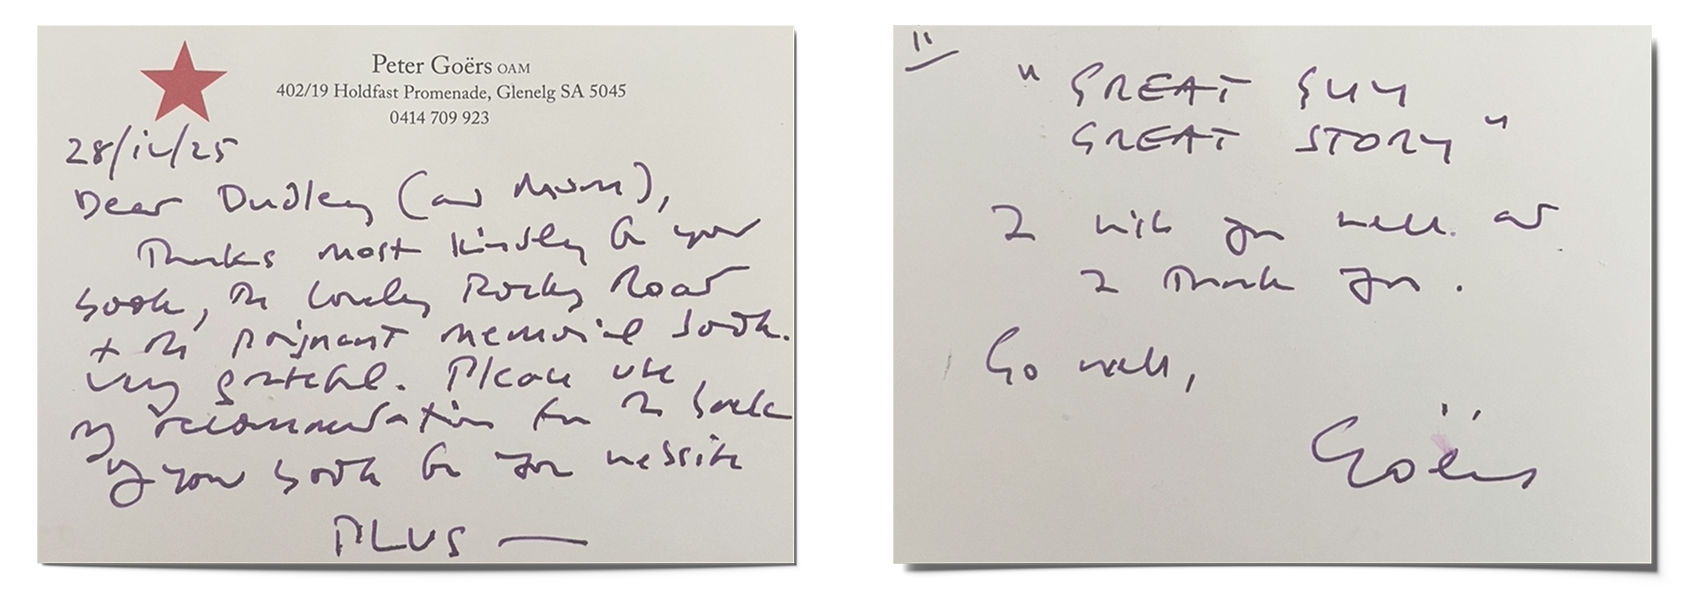 Peter Goërs OAM
402/19 Holdfast Promenade, Glenelg SA 5045
0414 709 923
28/iv/25
Dear Dudley (and Mum),
Thanks most kindly for your
book, the lovely Rocky Road
+ the poignant memorial book.
Very grateful. Please use
my recommendation for the back
of your book for your website
PLUS —
"GREAT GUY
GREAT STORY"
I wish you well and
I thank you.
Go well,
Goërs